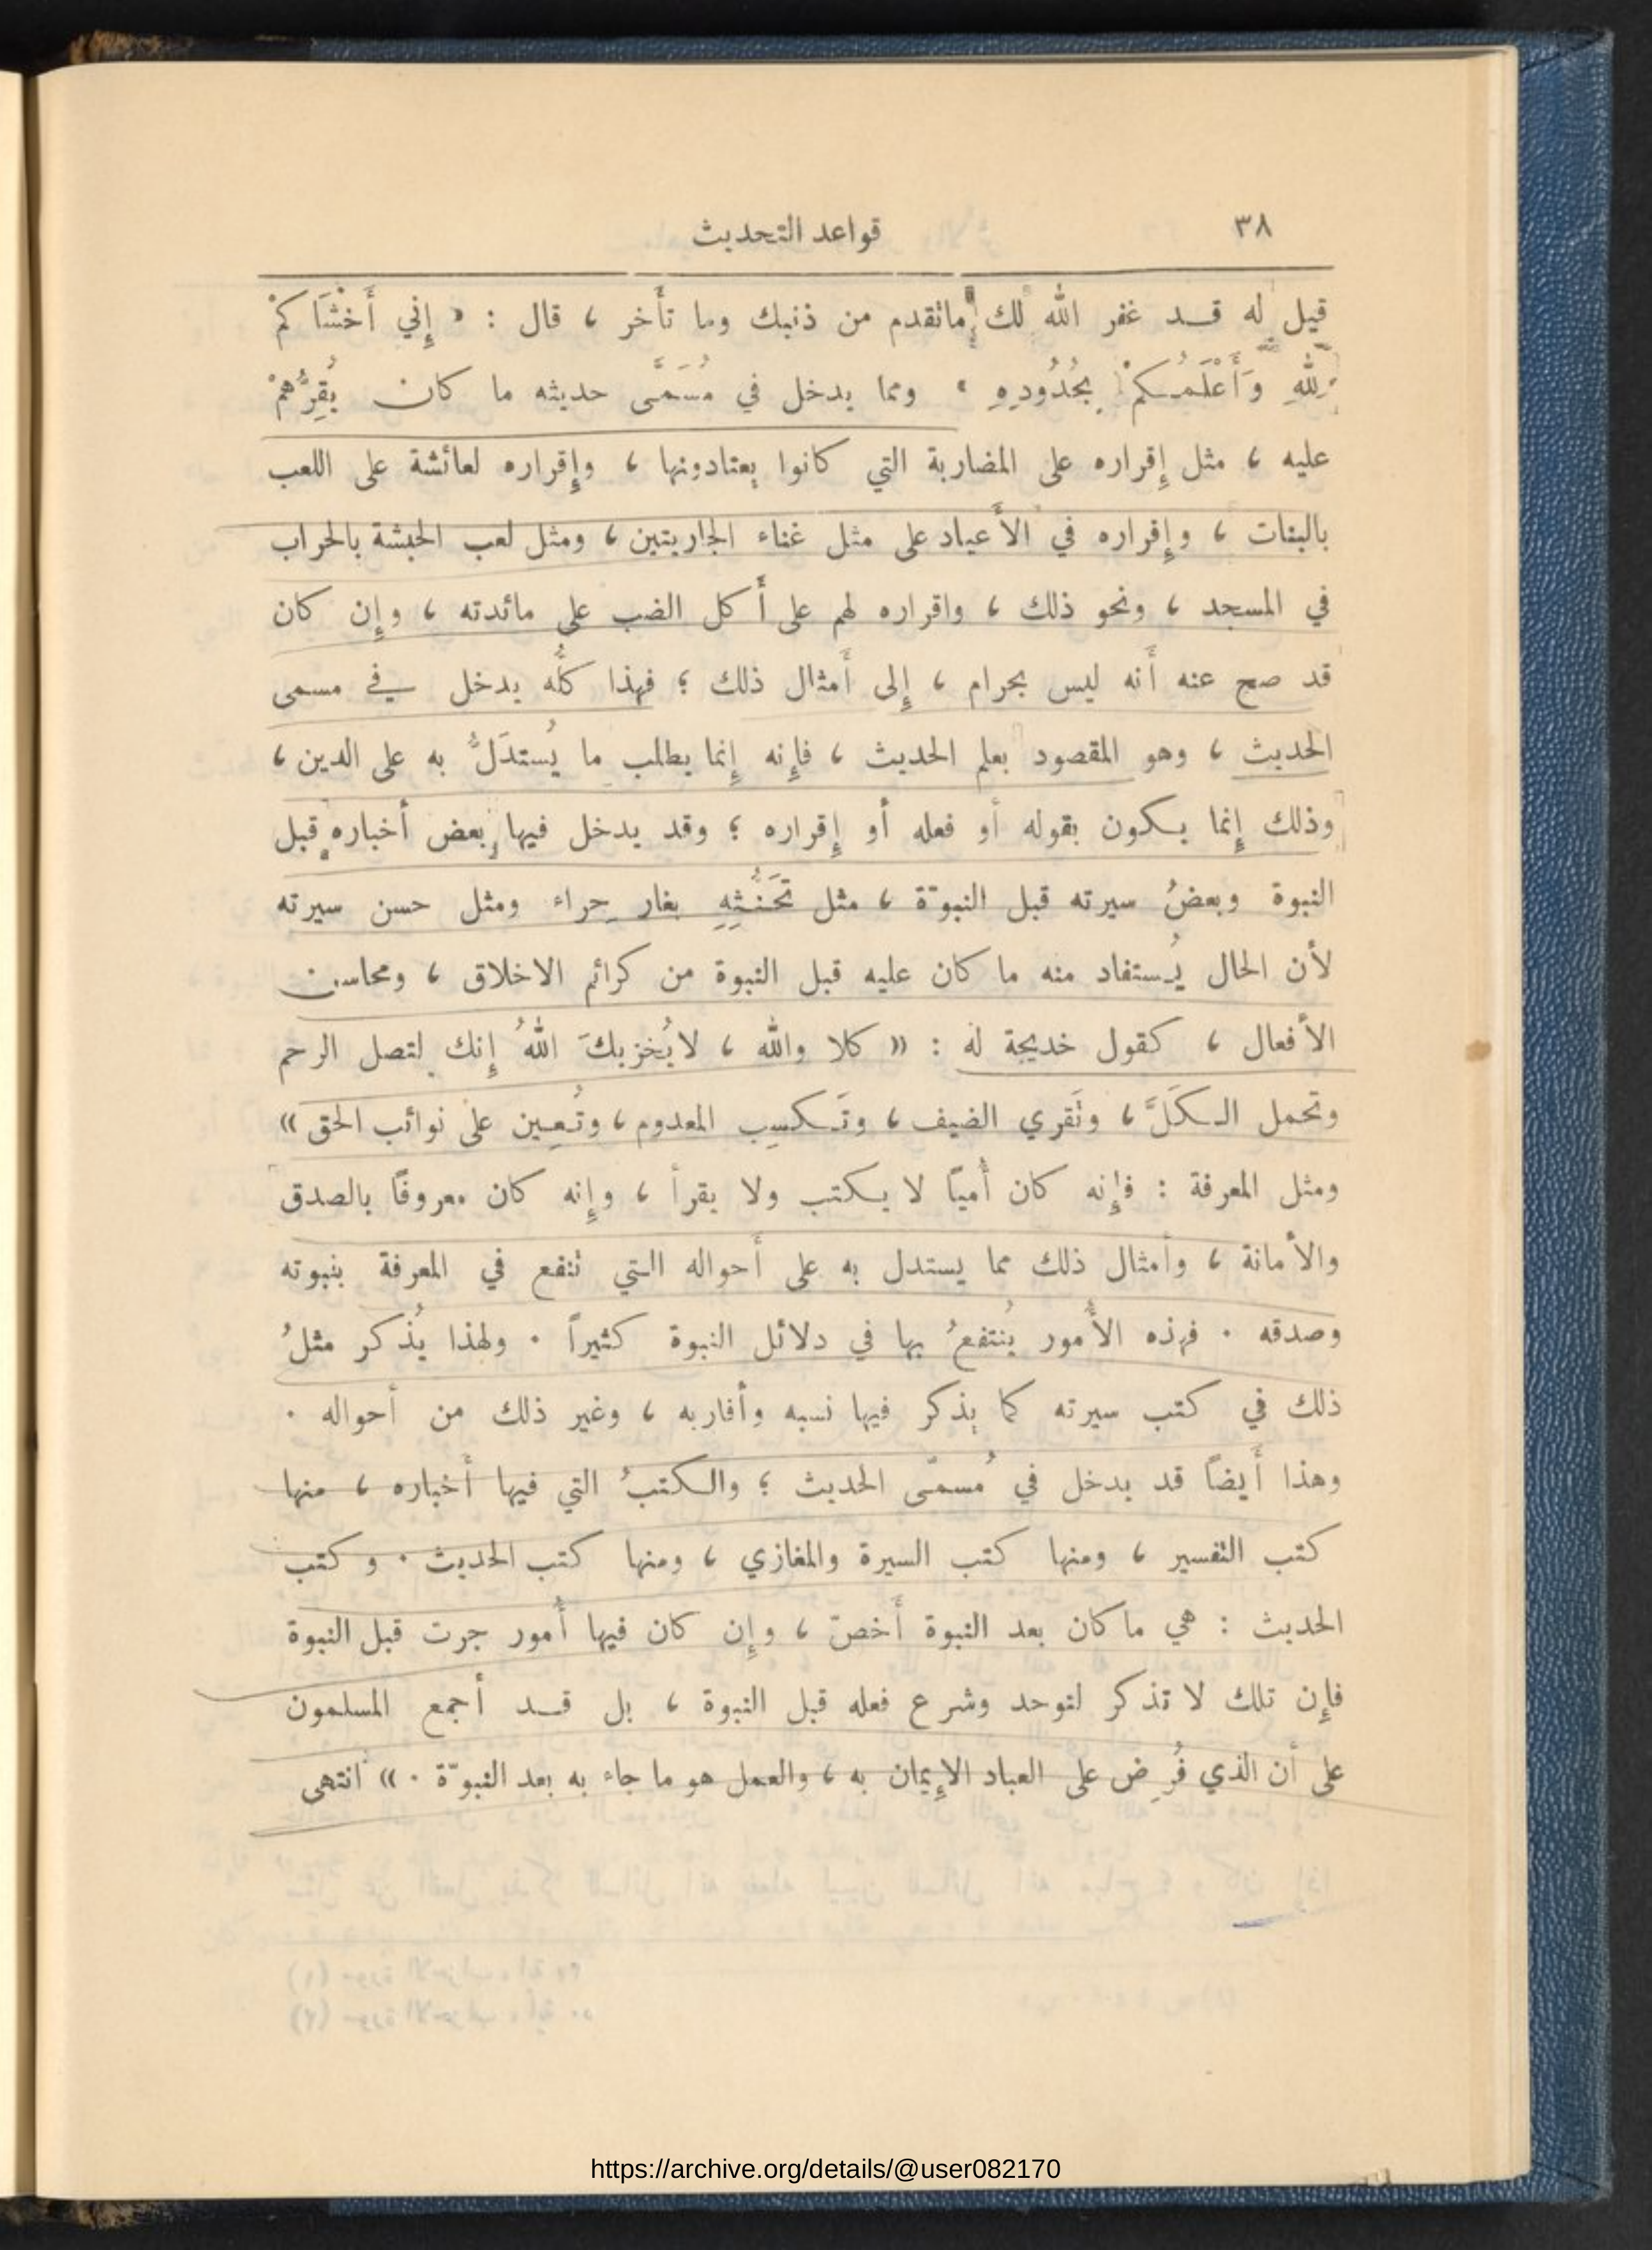 ٣٨
قواعد التحديث
قيل له قد غفر الله لك ماتقدم من ذنبك وما تأخر ، قال : « إِني أَخْشَاكمْ
للهِ وَأَعْلَمُكمْ بِحُدُودِهِ » ومما يدخل في مُسَمَّى حديثه ما كان يُقِرُّهمْ
عليه ، مثل إِقراره على المضاربة التي كانوا يعتادونها ، وإِقراره لعائشة على اللعب
بالبنات ، وإِقراره في الأَعياد على مثل غناء الجاريتين ، ومثل لعب الحبشة بالحراب
في المسجد ، ونحو ذلك ، واقراره لهم على أَكل الضب على مائدته ، وإِن كان
قد صح عنه أَنه ليس بحرام ، إِلى أَمثال ذلك ؛ فهذا كلُّه يدخل في مسمى
الحديث ، وهو المقصود بعلم الحديث ، فإِنه إِنما يطلب ما يُستدَلُّ به على الدين ،
وذلك إِنما يكون بقوله أو فعله أو إِقراره ؛ وقد يدخل فيها بعض أخباره قبل
النبوة وبعضُ سيرته قبل النبوّة ، مثل تَحَنُّثِهِ بغار حِراء ومثل حسن سيرته
لأن الحال يُستفاد منه ما كان عليه قبل النبوة من كرائم الاخلاق ، ومحاسن
الأفعال ، كقول خديجة له : « كلا والله ، لايُخزيكَ اللهُ إِنك لتصل الرحم
وتحمل الكَلَّ ، وتَقري الضيف ، وتَكسِب المعدوم ، وتُعين على نوائب الحق »
ومثل المعرفة : فإِنه كان أُميًا لا يكتب ولا يقرأ ، وإِنه كان معروفًا بالصدق
والأمانة ، وأمثال ذلك مما يستدل به على أَحواله التي تنفع في المعرفة بنبوته
وصدقه . فهذه الأُمور يُنتفعُ بها في دلائل النبوة كثيراً . ولهذا يُذكر مثلُ
ذلك في كتب سيرته كما يذكر فيها نسبه وأقاربه ، وغير ذلك من أحواله .
وهذا أَيضاً قد يدخل في مُسمّى الحديث ؛ والكتبُ التي فيها أَخباره ، منها
كتب التفسير ، ومنها كتب السيرة والمغازي ، ومنها كتب الحديث . وكتب
الحديث : هي ماكان بعد النبوة أَخصّ ، وإِن كان فيها أُمور جرت قبل النبوة
فإِن تلك لا تذكر لتوحد وشرع فعله قبل النبوة ، بل قد أجمع المسلمون
على أن الذي فُرِض على العباد الإِيمان به ، والعمل هو ما جاء به بعد النبوّة . » انتهى
https://archive.org/details/@user082170